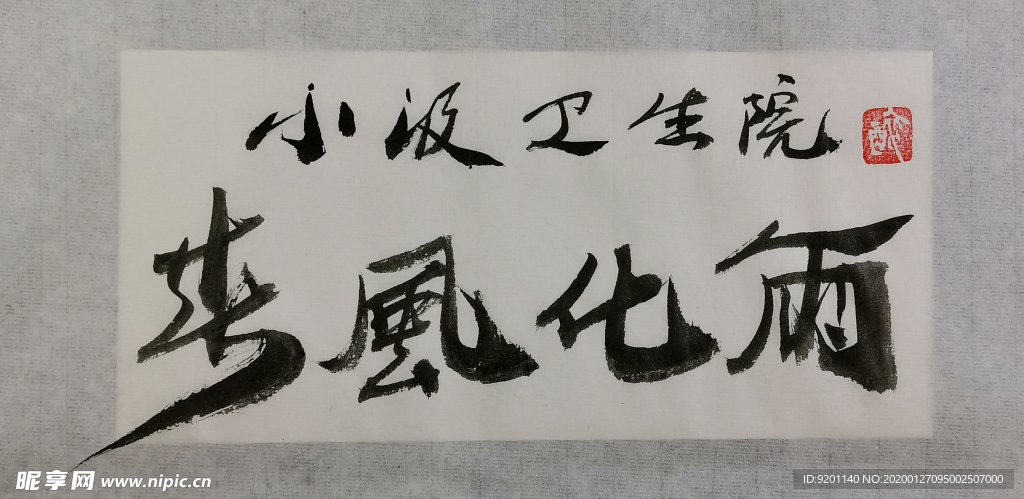 小汲卫生院
春風化雨
昵享网 www.nipic.cn
ID:9201140 NO:20200127095002507000